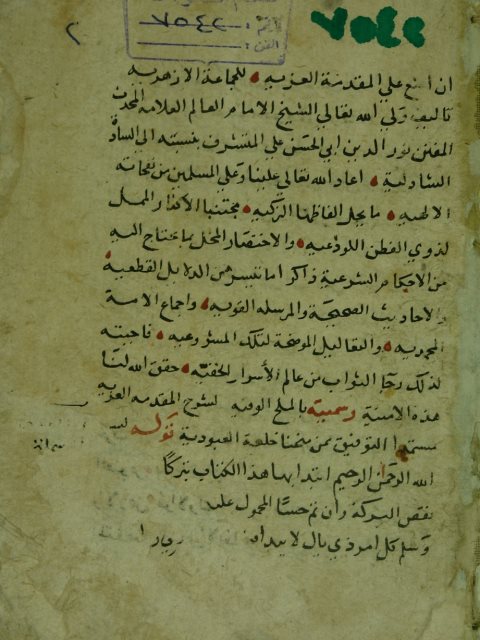 ٧٥٤٢
٧٥٤٢
٢
ان اضع علي المقدمة العزيه للجماعة الازهريه
تاليف ولي الله تعالي الشيخ الامام العالم العلامه المحدث
المفنن نور الدين ابي الحسن علي المتشرف بنسبته الي السادة
الشادلية اعاد الله تعالي علينا وعلي المسلمين من نفحاته
الالهيه ما يحل الفاظها الزكيه مجتنبا الاكثار الممل
لذوي الفطن اللوذعيه والاختصار المخل بما يحتاج اليه
من الاحكام الشرعية ذاكرا ما تيسر من الدلايل القطعية
والاحاديث الصحيحة والمرسله القويه واجماع الامة
المحمديه والتعاليل الموضحة لتلك المشروعيه فاجبته
لذلك رجا الثواب من عالم الأسرار الخفيه حقق الله لنا
هذه الامنية وسميته بالمنح الوفيه لشرح المقدمه العزيه
مستمدا التوفيق ممن منحنا خلعة العبودية قوله بسم
الله الرحمن الرحيم ابتدا بها هذا الكتاب تبركا
نقص البركة وان تم حسا المحمول عليه
وسلم كل امر ذي بال لا يبدا فيه